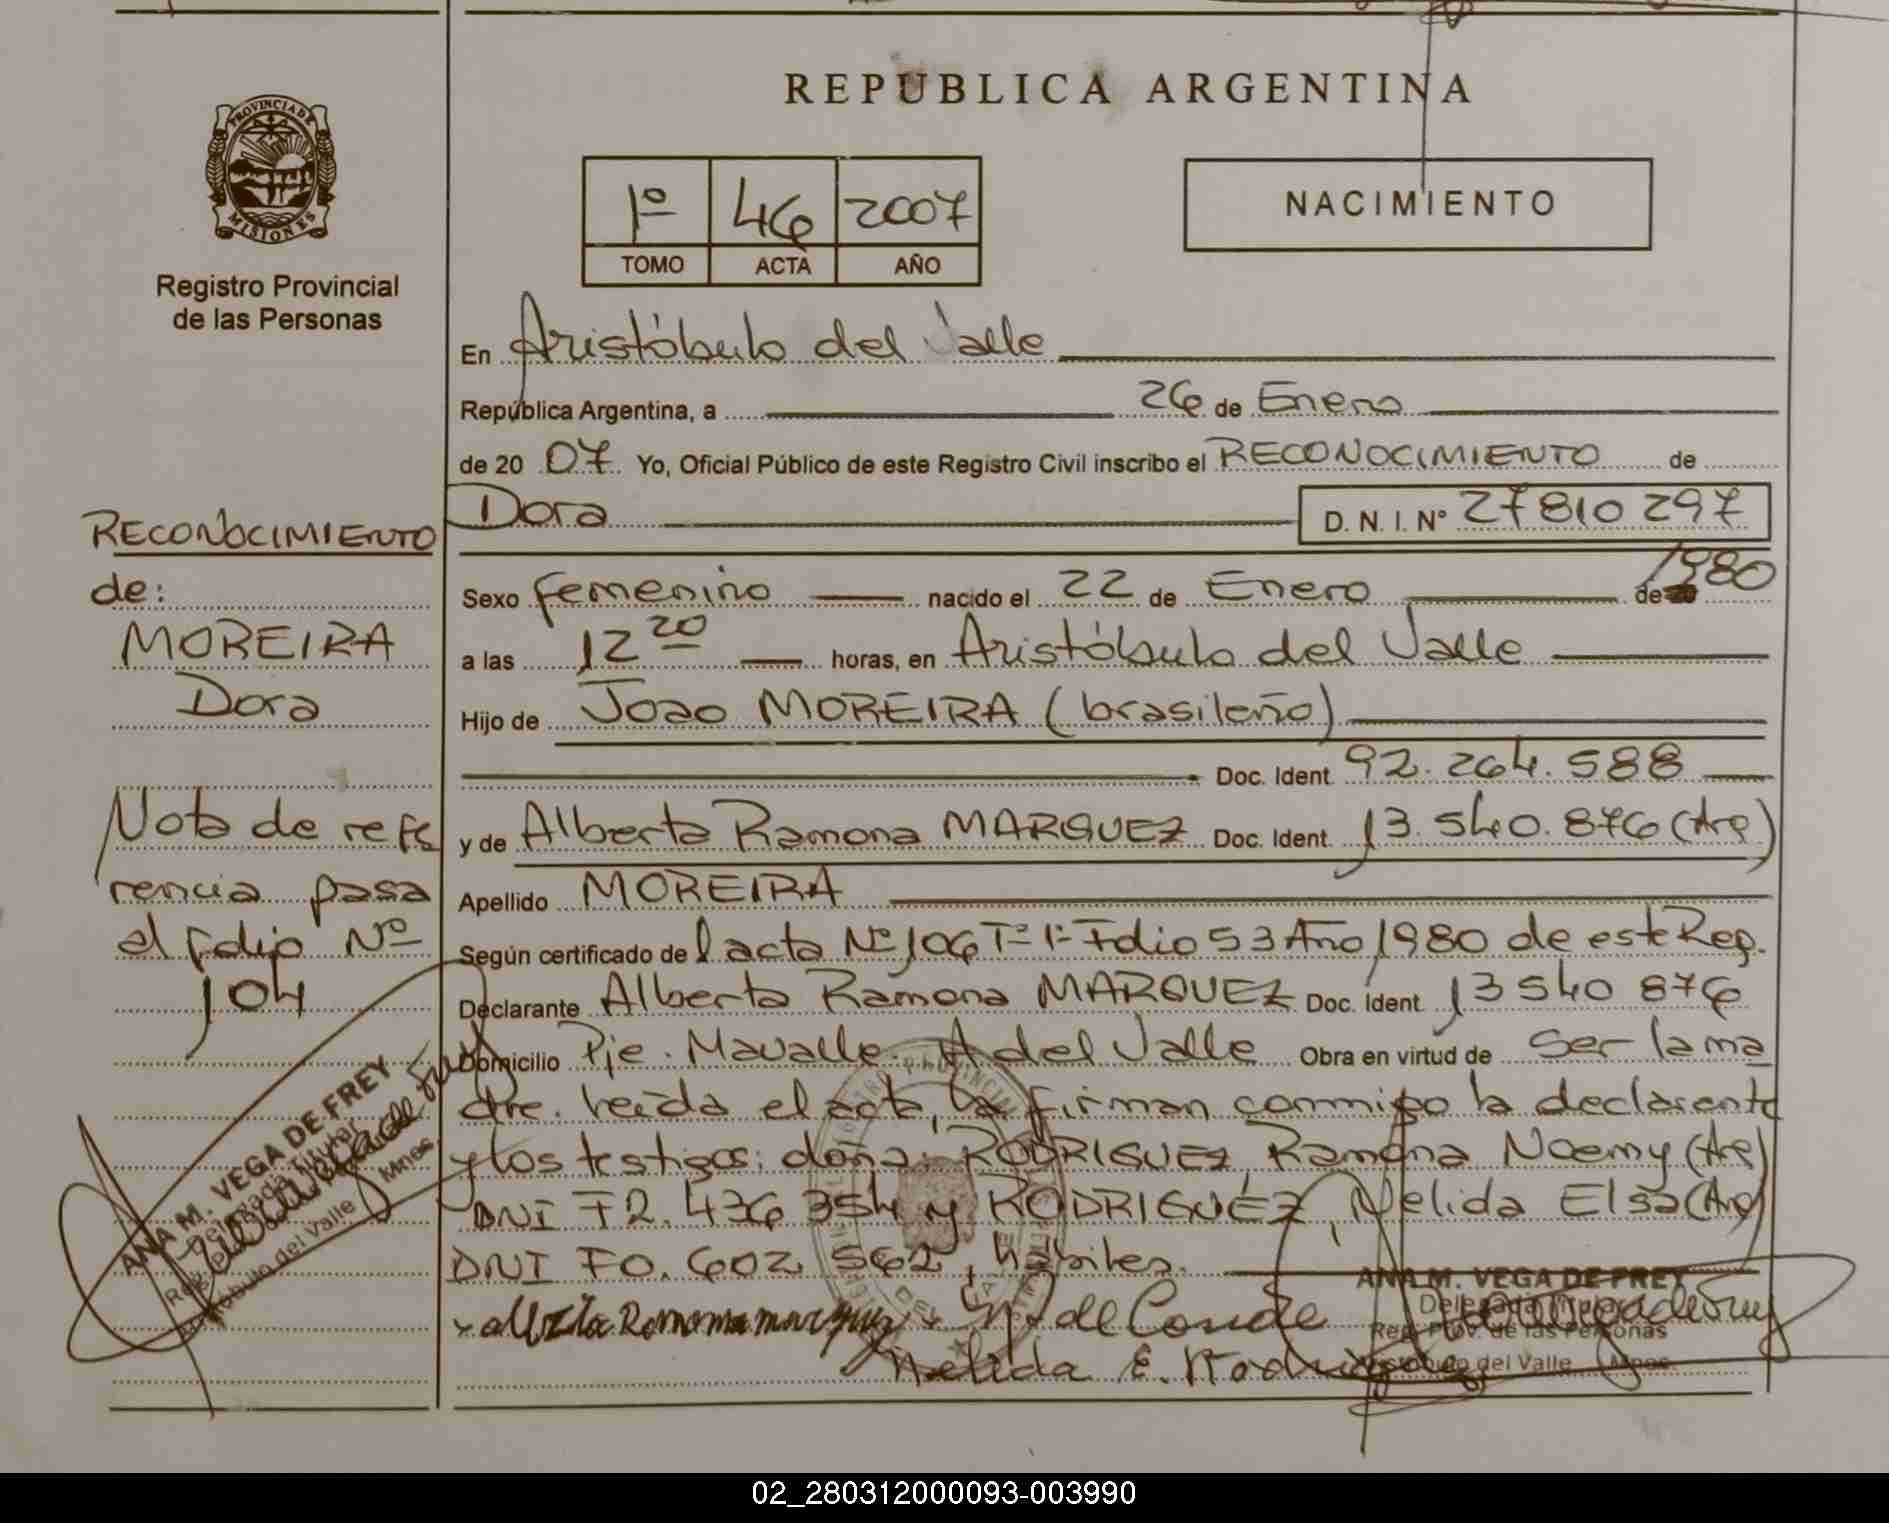 REPUBLICA ARGENTINA
PROVINCIA DE
MISIONES
Registro Provincial
de las Personas
1º 46 2007
TOMO ACTA AÑO
NACIMIENTO
En Aristóbulo del Valle
República Argentina, a 26 de Enero
de 20 07 Yo, Oficial Público de este Registro Civil inscribo el RECONOCIMIENTO de
Dora D. N. I. Nº 27810297
Sexo femenino nacido el 22 de Enero de 1980
a las 12 20 horas, en Aristóbulo del Valle
Hijo de Joao MOREIRA (brasileño)
Doc. Ident. 92.264.588
y de Alberta Ramona MARQUEZ Doc. Ident. 13.540.876 (Arg)
Apellido MOREIRA
Según certificado de l acta Nº 106 Tº 1º Folio 53 Año 1980 de este Reg.
Declarante Alberta Ramona MARQUEZ Doc. Ident. 13 540 876
Domicilio Pje. Mavalle. A del Valle Obra en virtud de ser la ma
dre. leída el acta, la firman conmigo la declarante
y los testigos: doña: RODRIGUEZ, Ramona Noemy (Arg)
DNI F2.436 354 y RODRIGUEZ, Nelida Elsa (Arg)
DNI F0.602 562, hábiles.
RECONOCIMIENTO
de:
MOREIRA
Dora
Nota de refe
rencia pasa
al folio Nº
104
ANA M. VEGA DE FREY
Delegada Titular
Reg.
Aristóbulo del Valle Mnes.
Nelida E. Rodriguez
ANA M. VEGA DE FREY
Delegada Titular
Reg. Prov. de las Personas
Aristóbulo del Valle Mnes.
02_280312000093-003990